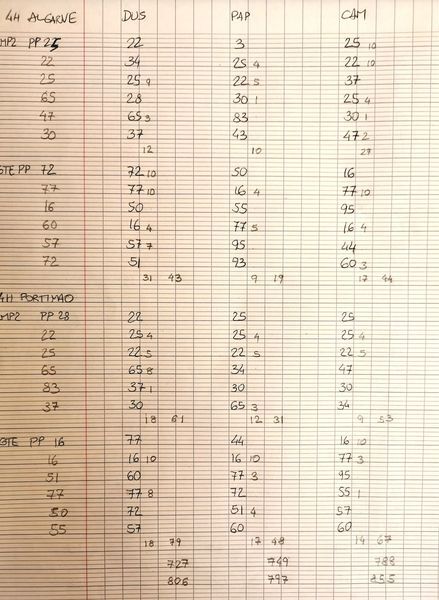 4H ALGARVE DUS PAP CAM
MP2 PP 25 22 3 25 10
22 34 25 4 22 10
25 25 9 22 5 37
65 28 30 1 25 4
47 65 3 83 30 1
30 37 43 47 2
12 10 27
GTE PP 72 72 10 50 16
77 77 10 16 4 77 10
16 50 55 95
60 16 4 77 5 16 4
57 57 7 95 44
72 51 93 60 3
31 43 9 19 17 44
4H PORTIMAO
MP2 PP 28 22 25 25
22 25 4 25 4 25 4
25 22 5 22 5 22 5
65 65 8 34 47
83 37 1 30 30
37 30 65 3 34
18 61 12 31 9 53
GTE PP 16 77 44 16 10
16 16 10 16 10 77 3
51 60 77 3 95
77 77 8 72 55 1
50 72 51 4 57
55 57 60 60
18 79 17 48 14 67
727 749 788
806 797 855